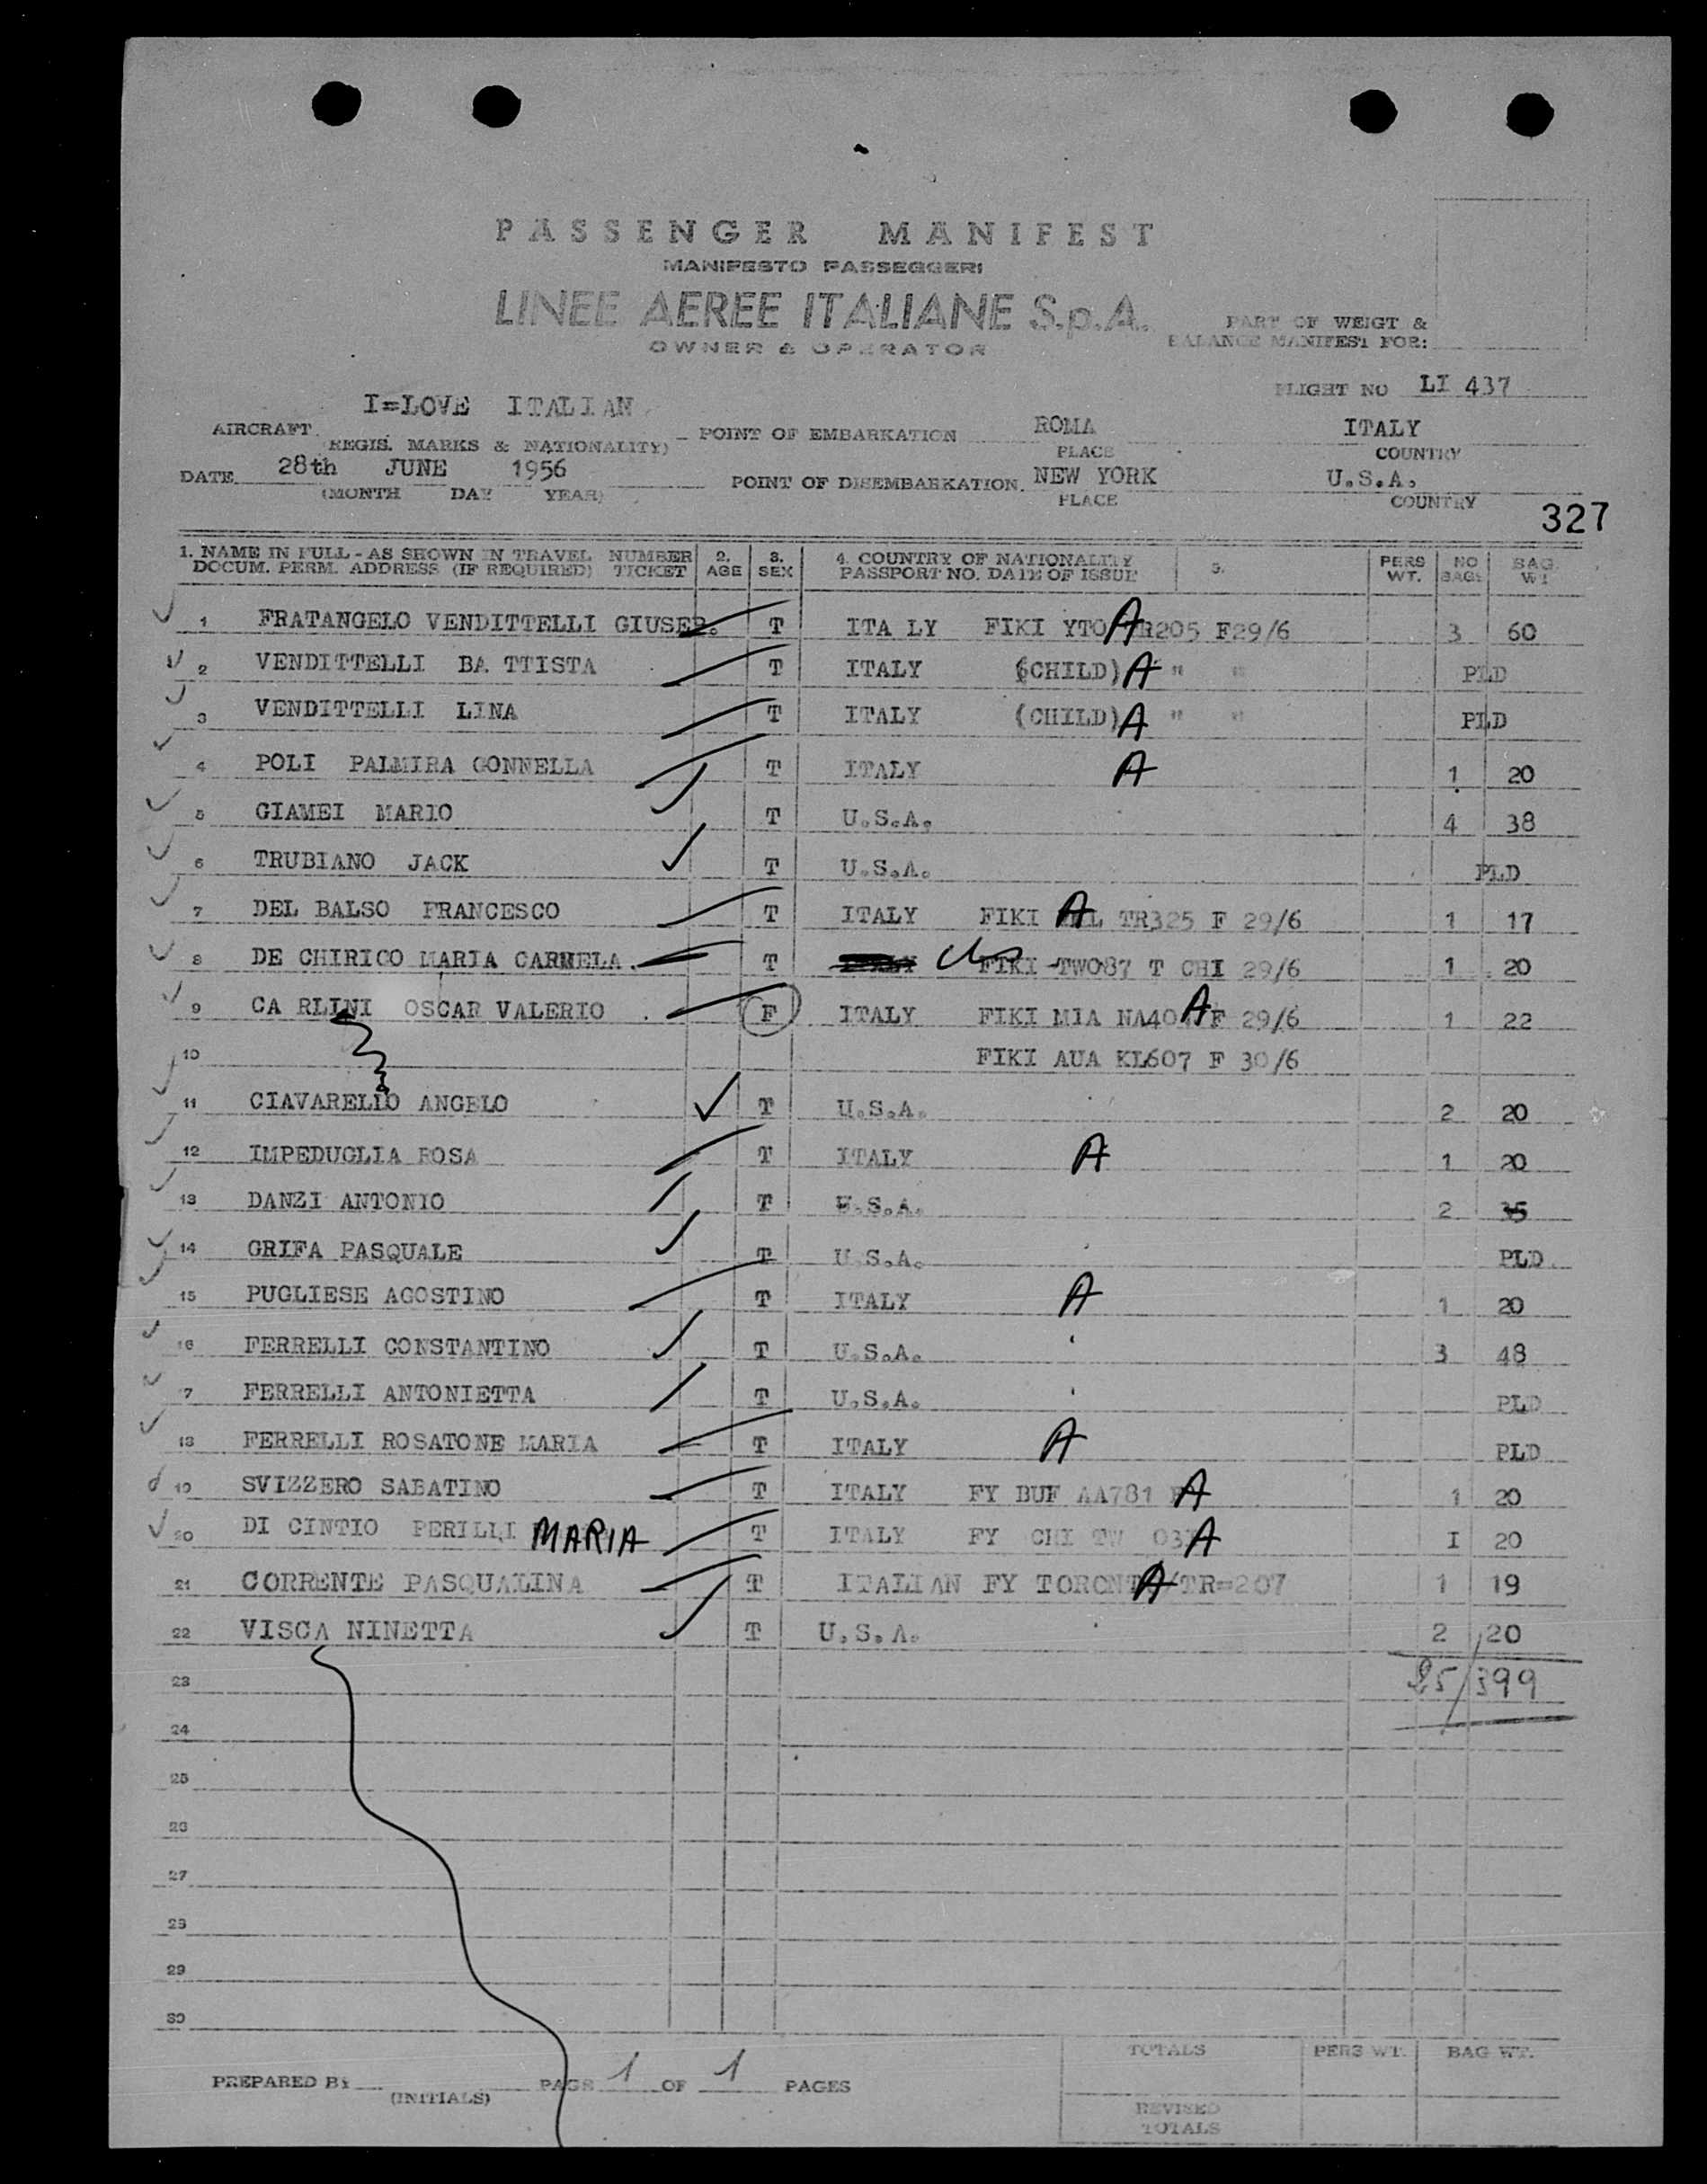 PASSENGER MANIFEST
MANIFESTO PASSEGGERI
LINEE AEREE ITALIANE S.p.A.
OWNER & OPERATOR
PART OF WEIGT &
BALANCE MANIFEST FOR:
FLIGHT NO LI 437
I=LOVE ITALIAN
AIRCRAFT (REGIS. MARKS & NATIONALITY)
POINT OF EMBARKATION ROMA ITALY
PLACE COUNTRY
DATE 28th JUNE 1956
(MONTH DAY YEAR)
POINT OF DISEMBARKATION NEW YORK U.S.A.
PLACE COUNTRY
327
1. NAME IN FULL - AS SHOWN IN TRAVEL NUMBER 2. 3. 4. COUNTRY OF NATIONALITY 5. PERS NO BAG
DOCUM. PERM. ADDRESS (IF REQUIRED) TICKET AGE SEX PASSPORT NO. DATE OF ISSUE WT. BAGS WT
1 FRATANGELO VENDITTELLI GIUSEP. T ITA LY FIKI YTO A R205 F29/6 3 60
2 VENDITTELLI BA TTISTA T ITALY (CHILD) A " " PLD
3 VENDITTELLI LINA T ITALY (CHILD) A " " PLD
4 POLI PALMIRA GONNELLA T ITALY A 1 20
5 GIAMEI MARIO T U.S.A. 4 38
6 TRUBIANO JACK T U.S.A. PLD
7 DEL BALSO FRANCESCO T ITALY FIKI A L TR325 F 29/6 1 17
8 DE CHIRICO MARIA CARMELA. T FIKI TW087 T CHI 29/6 1 20
9 CA RLINI OSCAR VALERIO . F ITALY FIKI MIA NA40 A F 29/6 1 22
10 FIKI AUA KL607 F 30/6
11 CIAVARELLO ANGELO T U.S.A. 2 20
12 IMPEDUGLIA ROSA T ITALY A 1 20
13 DANZI ANTONIO T U.S.A. 2 35
14 GRIFA PASQUALE T U.S.A. PLD
15 PUGLIESE AGOSTINO T ITALY A 1 20
16 FERRELLI CONSTANTINO T U.S.A. 3 48
17 FERRELLI ANTONIETTA T U.S.A. PLD
18 FERRELLI ROSATONE MARIA T ITALY A PLD
19 SVIZZERO SABATINO T ITALY FY BUF AA781 A 1 20
20 DI CINTIO PERILLI MARIA T ITALY FY CHI TW 03 A I 20
21 CORRENTE PASQUALINA T ITALIAN FY TORONT A /TR=207 1 19
22 VISCA NINETTA T U.S.A. 2 20
23 25/399
24
25
26
27
28
29
30
PREPARED BY (INITIALS) PAGE 1 OF 1 PAGES
TOTALS PERS WT. BAG WT.
REVISED
TOTALS